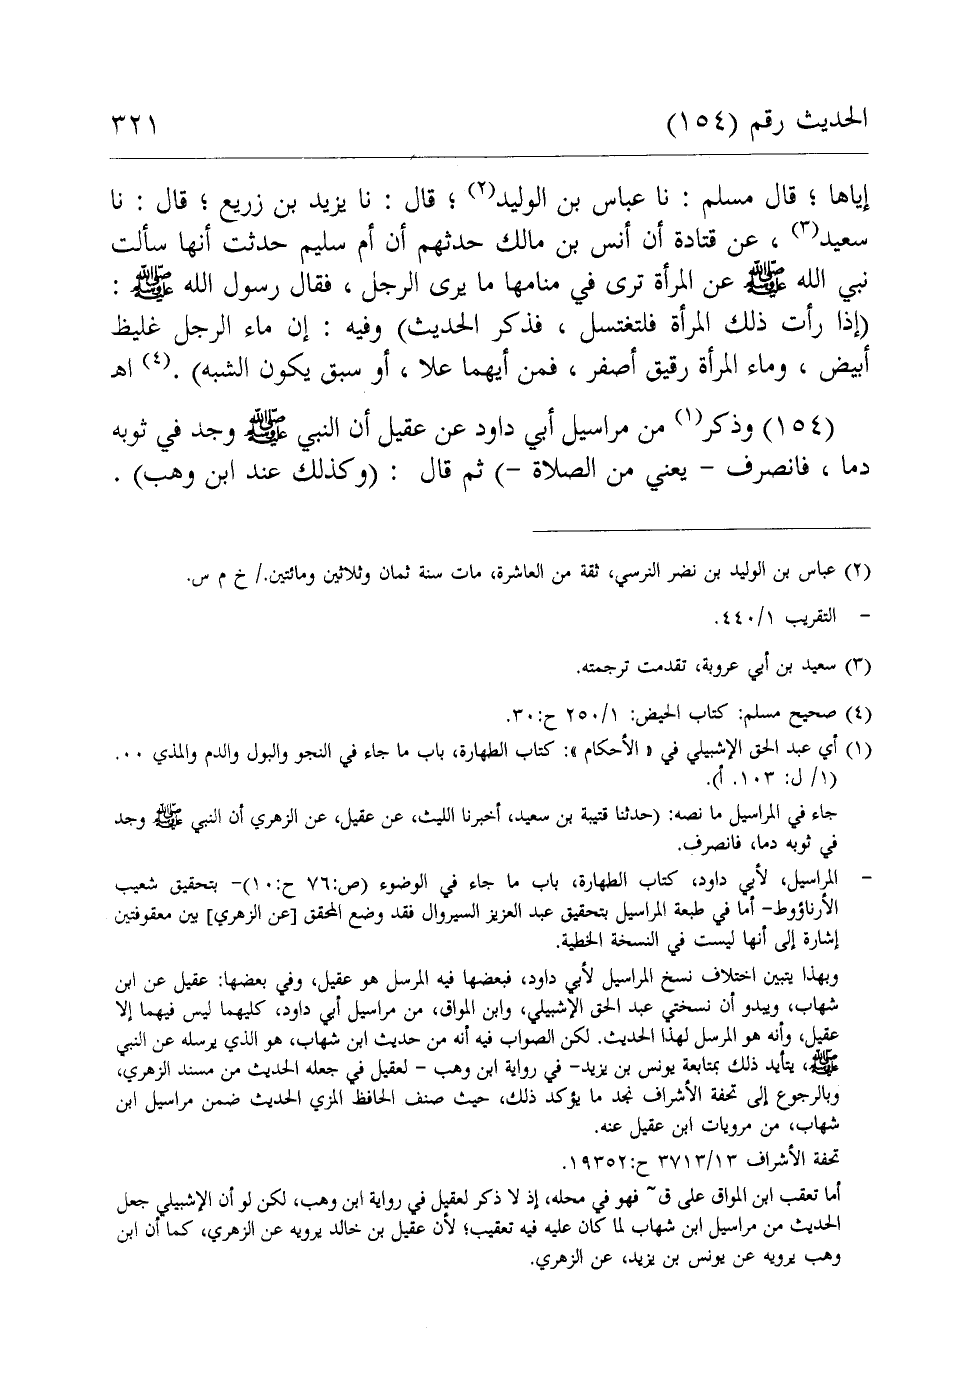 الحديث رقم (١٥٤) ٣٢١
إياها ؛ قال مسلم : نا عباس بن الوليد(٢) ؛ قال : نا يزيد بن زريع ؛ قال : نا
سعيد(٣) ، عن قتادة أن أنس بن مالك حدثهم أن أم سليم حدثت أنها سألت
نبي الله ﷺ عن المرأة ترى في منامها ما يرى الرجل ، فقال رسول الله ﷺ :
(إذا رأت ذلك المرأة فلتغتسل ، فذكر الحديث) وفيه : إن ماء الرجل غليظ
أبيض ، وماء المرأة رقيق أصفر ، فمن أيهما علا ، أو سبق يكون الشبه) .(٤) اهـ
(١٥٤) وذكر(١) من مراسيل أبي داود عن عقيل أن النبي ﷺ وجد في ثوبه
دما ، فانصرف – يعني من الصلاة –) ثم قال : (وكذلك عند ابن وهب) .
(٢) عباس بن الوليد بن نضر النرسي، ثقة من العاشرة، مات سنة ثمان وثلاثين ومائتين./ خ م س.
– التقريب ١/٤٤٠.
(٣) سعيد بن أبي عروبة، تقدمت ترجمته.
(٤) صحيح مسلم: كتاب الحيض: ١/٢٥٠ ح:٣٠.
(١) أي عبد الحق الإشبيلي في « الأحكام »: كتاب الطهارة، باب ما جاء في النجو والبول والدم والمذي ٠٠.
(١/ ل: ١٠٣. أ).
جاء في المراسيل ما نصه: (حدثنا قتيبة بن سعيد، أخبرنا الليث، عن عقيل، عن الزهري أن النبي ﷺ وجد
في ثوبه دما، فانصرف.
– المراسيل، لأبي داود، كتاب الطهارة، باب ما جاء في الوضوء (ص:٧٦ ح:١٠)– بتحقيق شعيب
الأرناؤوط– أما في طبعة المراسيل بتحقيق عبد العزيز السيروال فقد وضع المحقق [عن الزهري] بين معقوفتين
إشارة إلى أنها ليست في النسخة الخطية.
وبهذا يتبين اختلاف نسخ المراسيل لأبي داود، فبعضها فيه المرسل هو عقيل، وفي بعضها: عقيل عن ابن
شهاب، ويبدو أن نسختي عبد الحق الإشبيلي، وابن المواق، من مراسيل أبي داود، كليهما ليس فيهما إلا
عقيل، وأنه هو المرسل لهذا الحديث. لكن الصواب فيه أنه من حديث ابن شهاب، هو الذي يرسله عن النبي
ﷺ، يتأيد ذلك بمتابعة يونس بن يزيد– في رواية ابن وهب – لعقيل في جعله الحديث من مسند الزهري،
وبالرجوع إلى تحفة الأشراف نجد ما يؤكد ذلك، حيث صنف الحافظ المزي الحديث ضمن مراسيل ابن
شهاب، من مرويات ابن عقيل عنه.
تحفة الأشراف ٣٧١٣/١٣ ح:١٩٣٥٢.
أما تعقب ابن المواق على ق~ فهو في محله، إذ لا ذكر لعقيل في رواية ابن وهب، لكن لو أن الإشبيلي جعل
الحديث من مراسيل ابن شهاب لما كان عليه فيه تعقيب؛ لأن عقيل بن خالد يرويه عن الزهري، كما أن ابن
وهب يرويه عن يونس بن يزيد، عن الزهري.